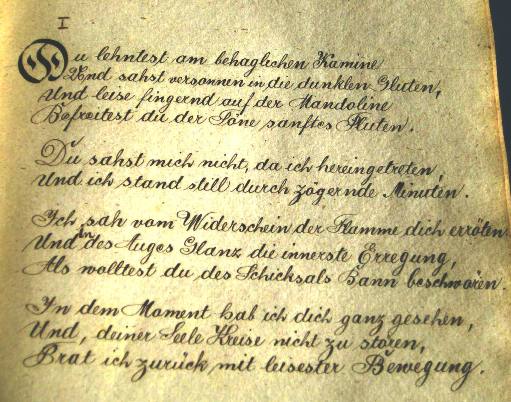 I
Du lehntest am behaglichen Kamine
Und sahst versonnen in die dunklen Gluten,
Und leise fingernd auf der Mandoline
Befreitest du der Töne sanftes Fluten.
Du sahst mich nicht, da ich hereingetreten,
Und ich stand still durch zögernde Minuten.
Ich sah vom Widerschein der Flamme dich erröten
Und in des Auges Glanz die innerste Erregung,
Als wolltest du des Schicksals Bann beschwören.
In dem Moment hab ich dich ganz gesehen,
Und, deiner Seele Kreise nicht zu stören,
Trat ich zurück mit leisester Bewegung.